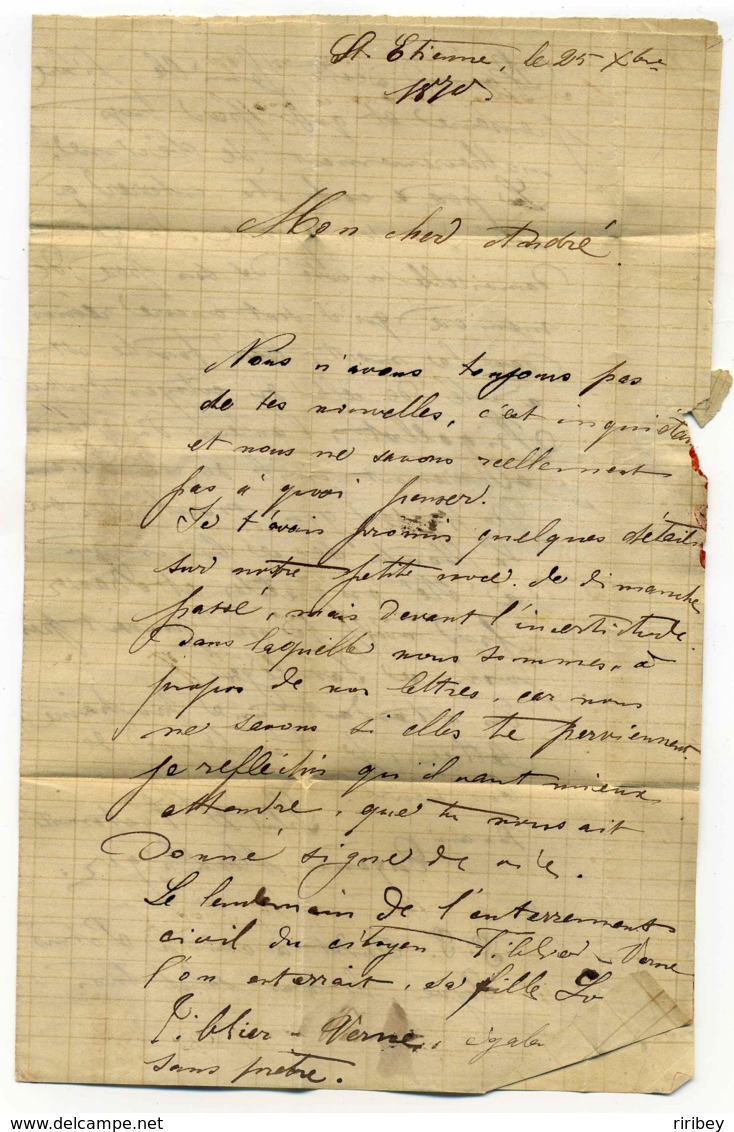 St. Etienne, le 25 Xbre
1870.
Mon cher André.
Nous n'avons toujours pas
de tes nouvelles, c'est inquiétan
et nous ne savons reellement
pas à quoi penser.
Je t'avais promis quelques détails
sur notre petite noce de dimanche
passé, mais devant l'incertitude
dans laquelle nous sommes, à
propos de nos lettres, car nous
ne savons si elles te parviennent
je refléchis qu'il vaut mieux
attendre, que tu nous ait
donné signe de vie.
Le lendemain de l'enterrement
civil du citoyen Tiblier-Verne
l'on enterrait, sa fille
Tiblier-Verne, égale
sans prêtre.
riribey